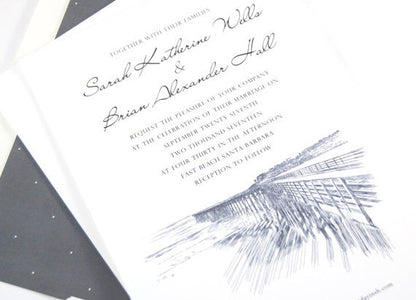 TOGETHER WITH THEIR FAMILIES
Sarah Katherine Wells
&
Brian Alexander Hall
REQUEST THE PLEASURE OF YOUR COMPANY
AT THE CELEBRATION OF THEIR MARRIAGE ON
SEPTEMBER TWENTY SEVENTH
TWO THOUSAND SEVENTEEN
AT FOUR THIRTY IN THE AFTERNOON
EAST BEACH SANTA BARBARA
RECEPTION TO FOLLOW